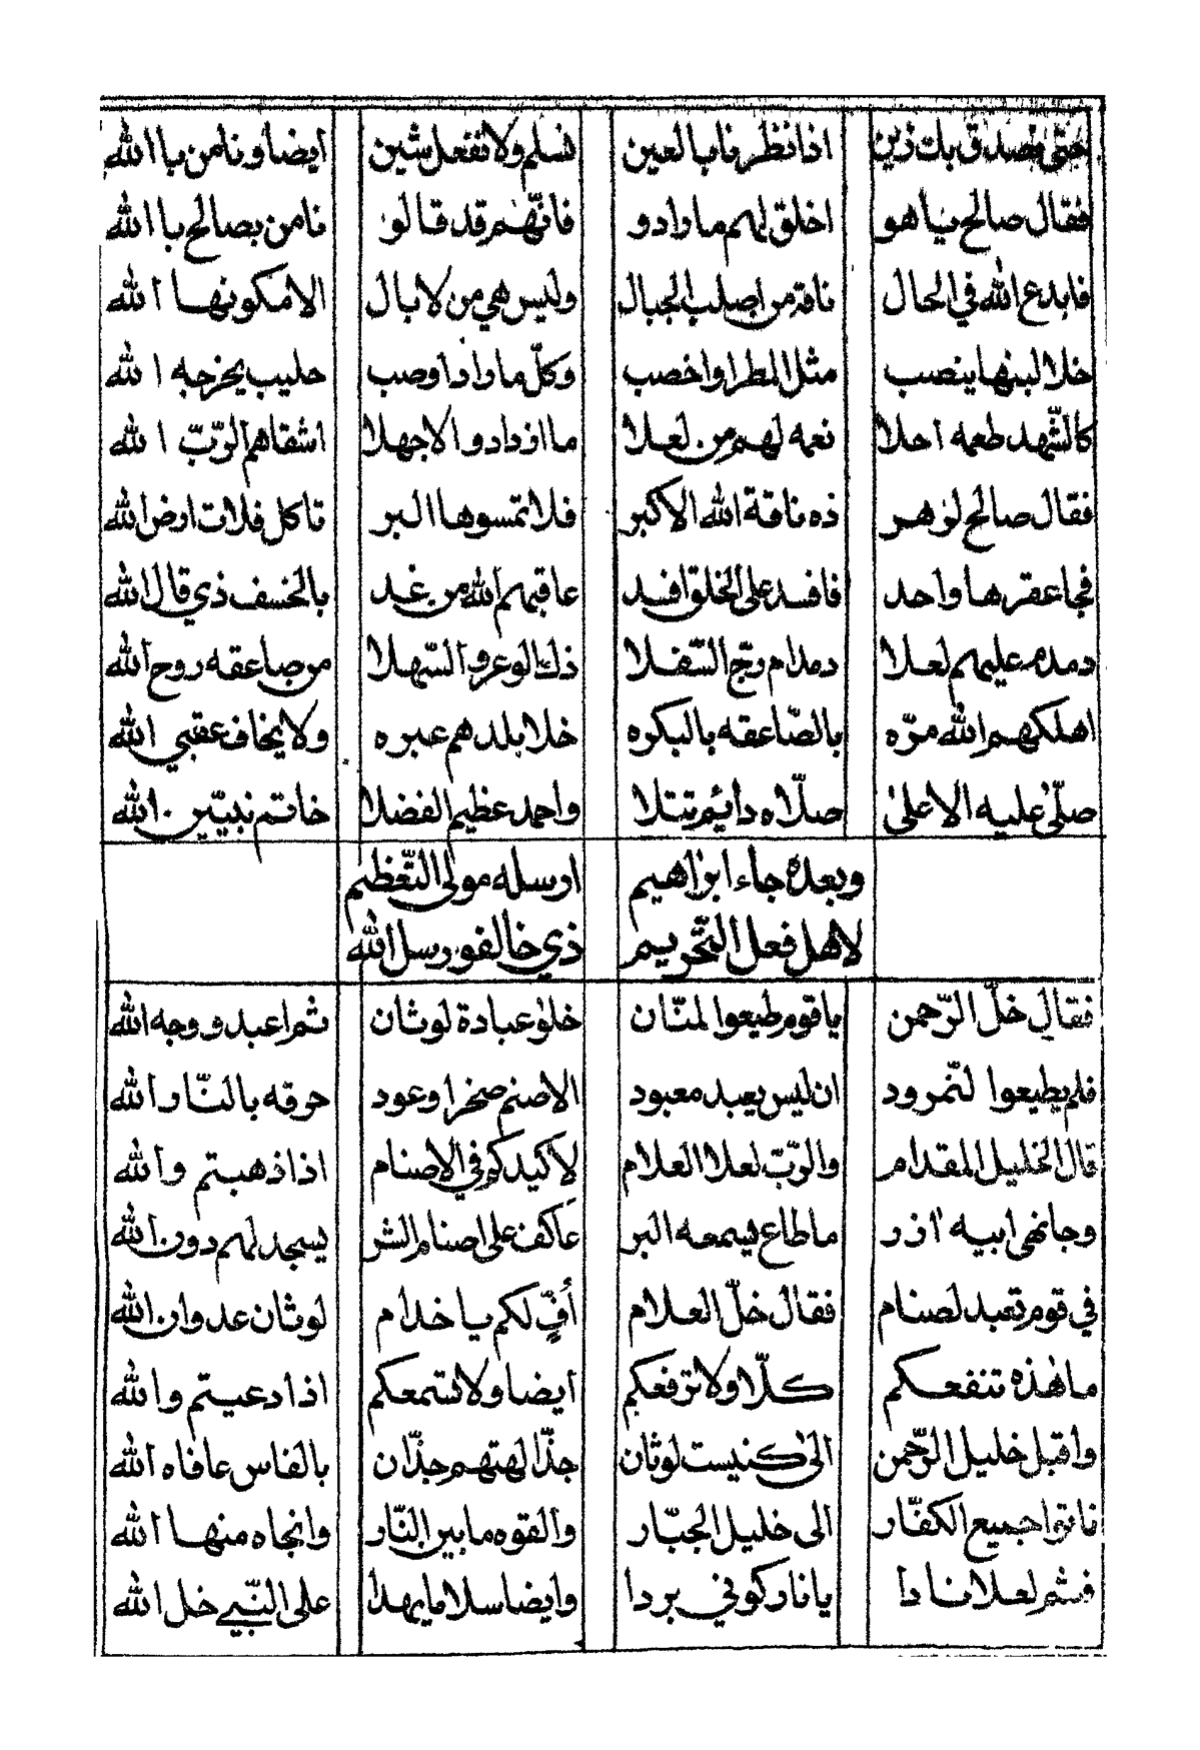 حتى نصدق بك زين اذا نظرنا بالعين نسلم ولا نفعل شين ايضا ونامن با الله
فقال صالح يا هو اخلق لهم ما رادو فانهم قد قالو نامن بصالح با الله
فابدع الله في الحال ناقة من اصلب الجبال وليس هي من لابال الا مكونها الله
خلا لبنها ينصب مثل المطر او اخصب وكلّ ما راد اوصب حليب يخرجه الله
كالشّهد طعمه احلا نعمه لهم من لعلا ما ازدادو الا جهلا اشقاهم الرّبّ الله
فقال صالح لزهر ذه ناقة الله الاكبر فلا تمسوها البر تاكل فلات ارض الله
فجا عقرها واحد فافسد على الخلق افسد عاقبهم الله من غد بالخسف ذي قال الله
دمدم عليهم لعلا دمدام رجّ السّفلا ذلك الوعر والسّهلا من صاعقه روح الله
اهلكهم الله مرّه بالصّاعقه بالبكره خلا بلدهم عبره ولا يخاف عقبي الله
صلّى عليه الاعلىٰ صلّاه دائم تتلا واحمد عظيم الفضلا خاتم نبيّين الله
وبعده جاء ابراهيم ارسله مولى التّعظيم
لاهل فعل التّحريم ذي خالفو رسل الله
فقال خلّ الرّحمن يا قوم طيعوا لمنّان خلو عبادة لوثان ثم اعبدو وجه الله
فلم يطيعوا لنّمرود ان ليس يعبد معبود الا صنم صخر او عود حرقه بالنّار الله
قال الخليل المقدام والرّبّ لعلا العلام لاكيدكم في الاصنام اذا ذهبتم والله
وجا نهى ابيه ازر ما طاع يسمعه البر عاكف على اصنام الشر يسجد لهم دون الله
في قوم تعبد لصنام فقال خلّ العلام أفٍّ لكم يا خدام لوثان عدوان الله
ما هذه تنفعكم كلّا ولا ترفعكم ايضا ولا تسمعكم اذا دعيتم والله
واقبل خليل الرّحمن الى كنيست لوثان جذّ الهتهم جذّان بالفاس عافاه الله
فاتوا جميع الكفّار الى خليل الجبّار والقوه ما بين النّار وانجاه منها الله
فثم لعلا نادا يا نار كوني بردا وايضا سلاما يهدا على النّبي خل الله